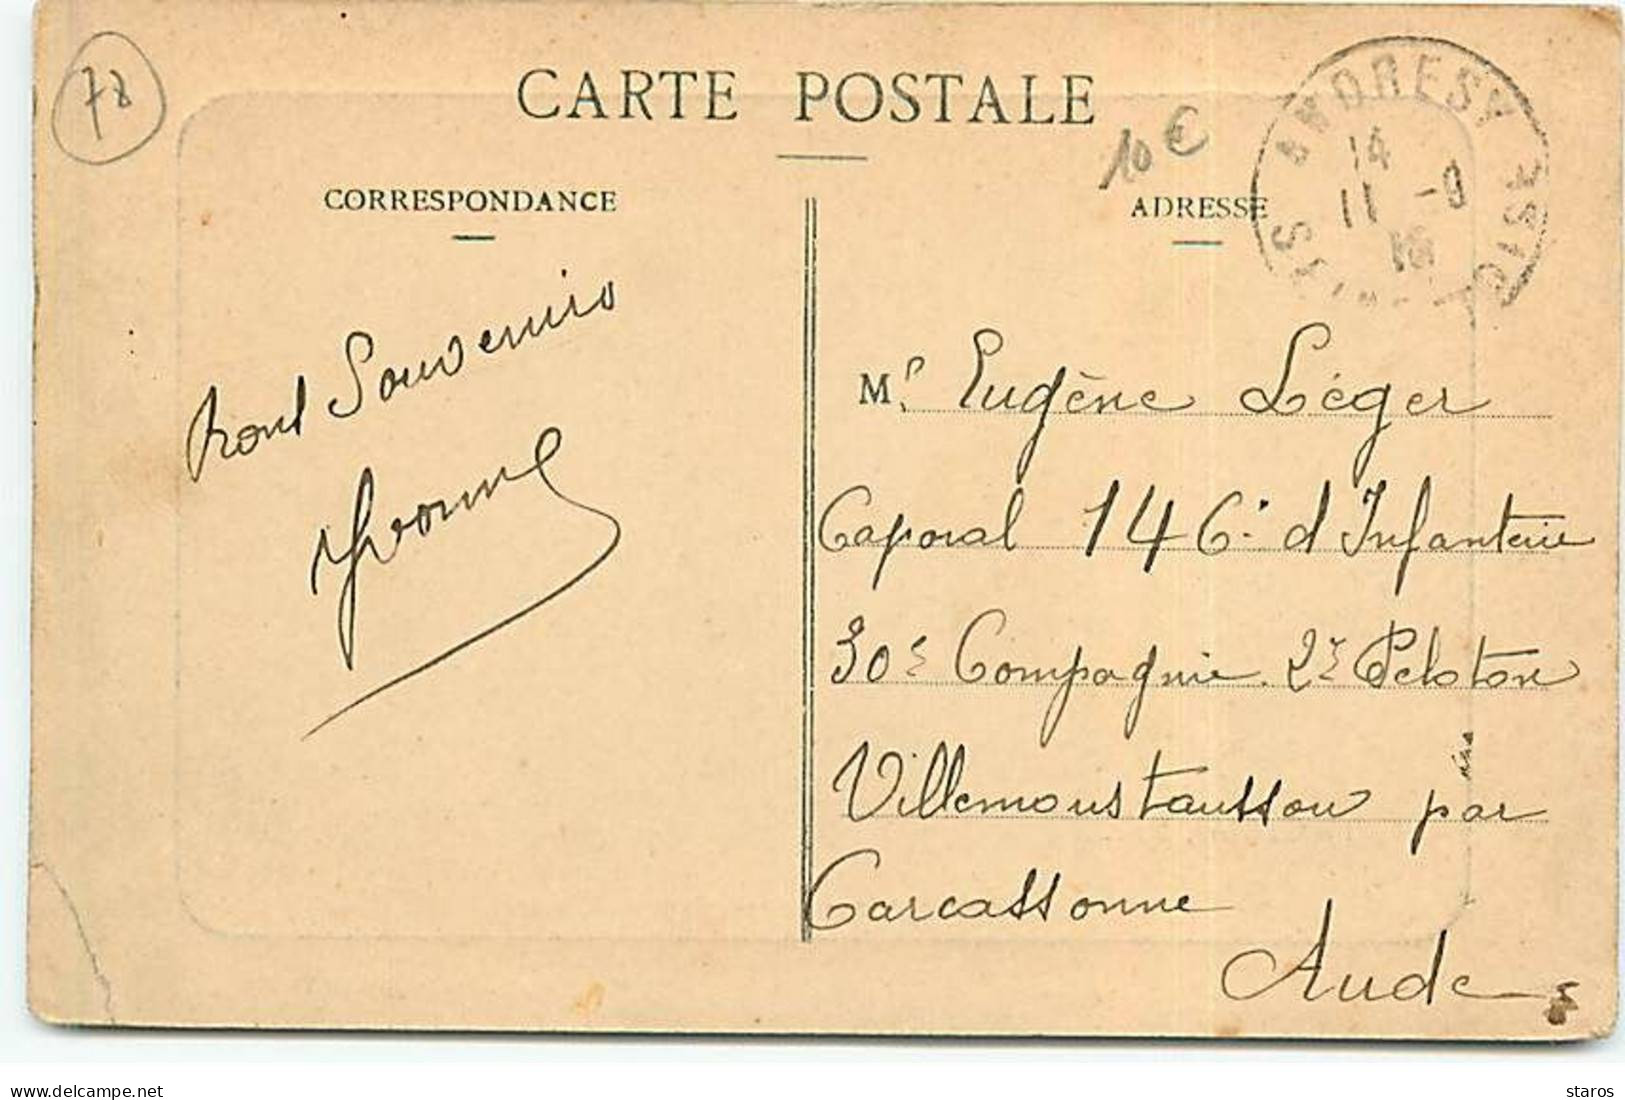 78
CARTE POSTALE
10€
CORRESPONDANCE
ADRESSE
ANDRESY
14
11 -9
16
SEINE ET OISE
Souvenirs
Yvonne
Mr Eugène Léger
Caporal 14 6e d'Infanterie
30e Compagnie 2e Peloton
Villemoustaussou par
Carcassonne
Aude
delcampe.net
staros